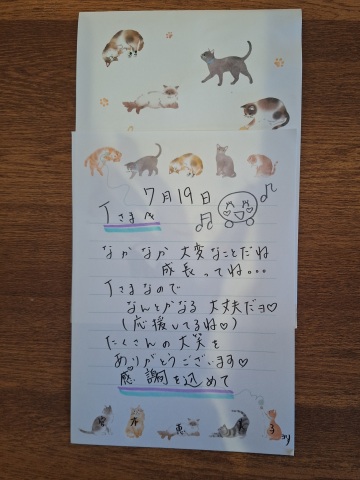 7月19日
Tさまへ
なかなか大変なことだね
成長ってね...
Tさまなので
なんとかなる大丈夫だヨ♡
(応援してるね♡)
たくさんの大笑を
ありがとうございます♡
感謝を込めて
宮本 恵
子